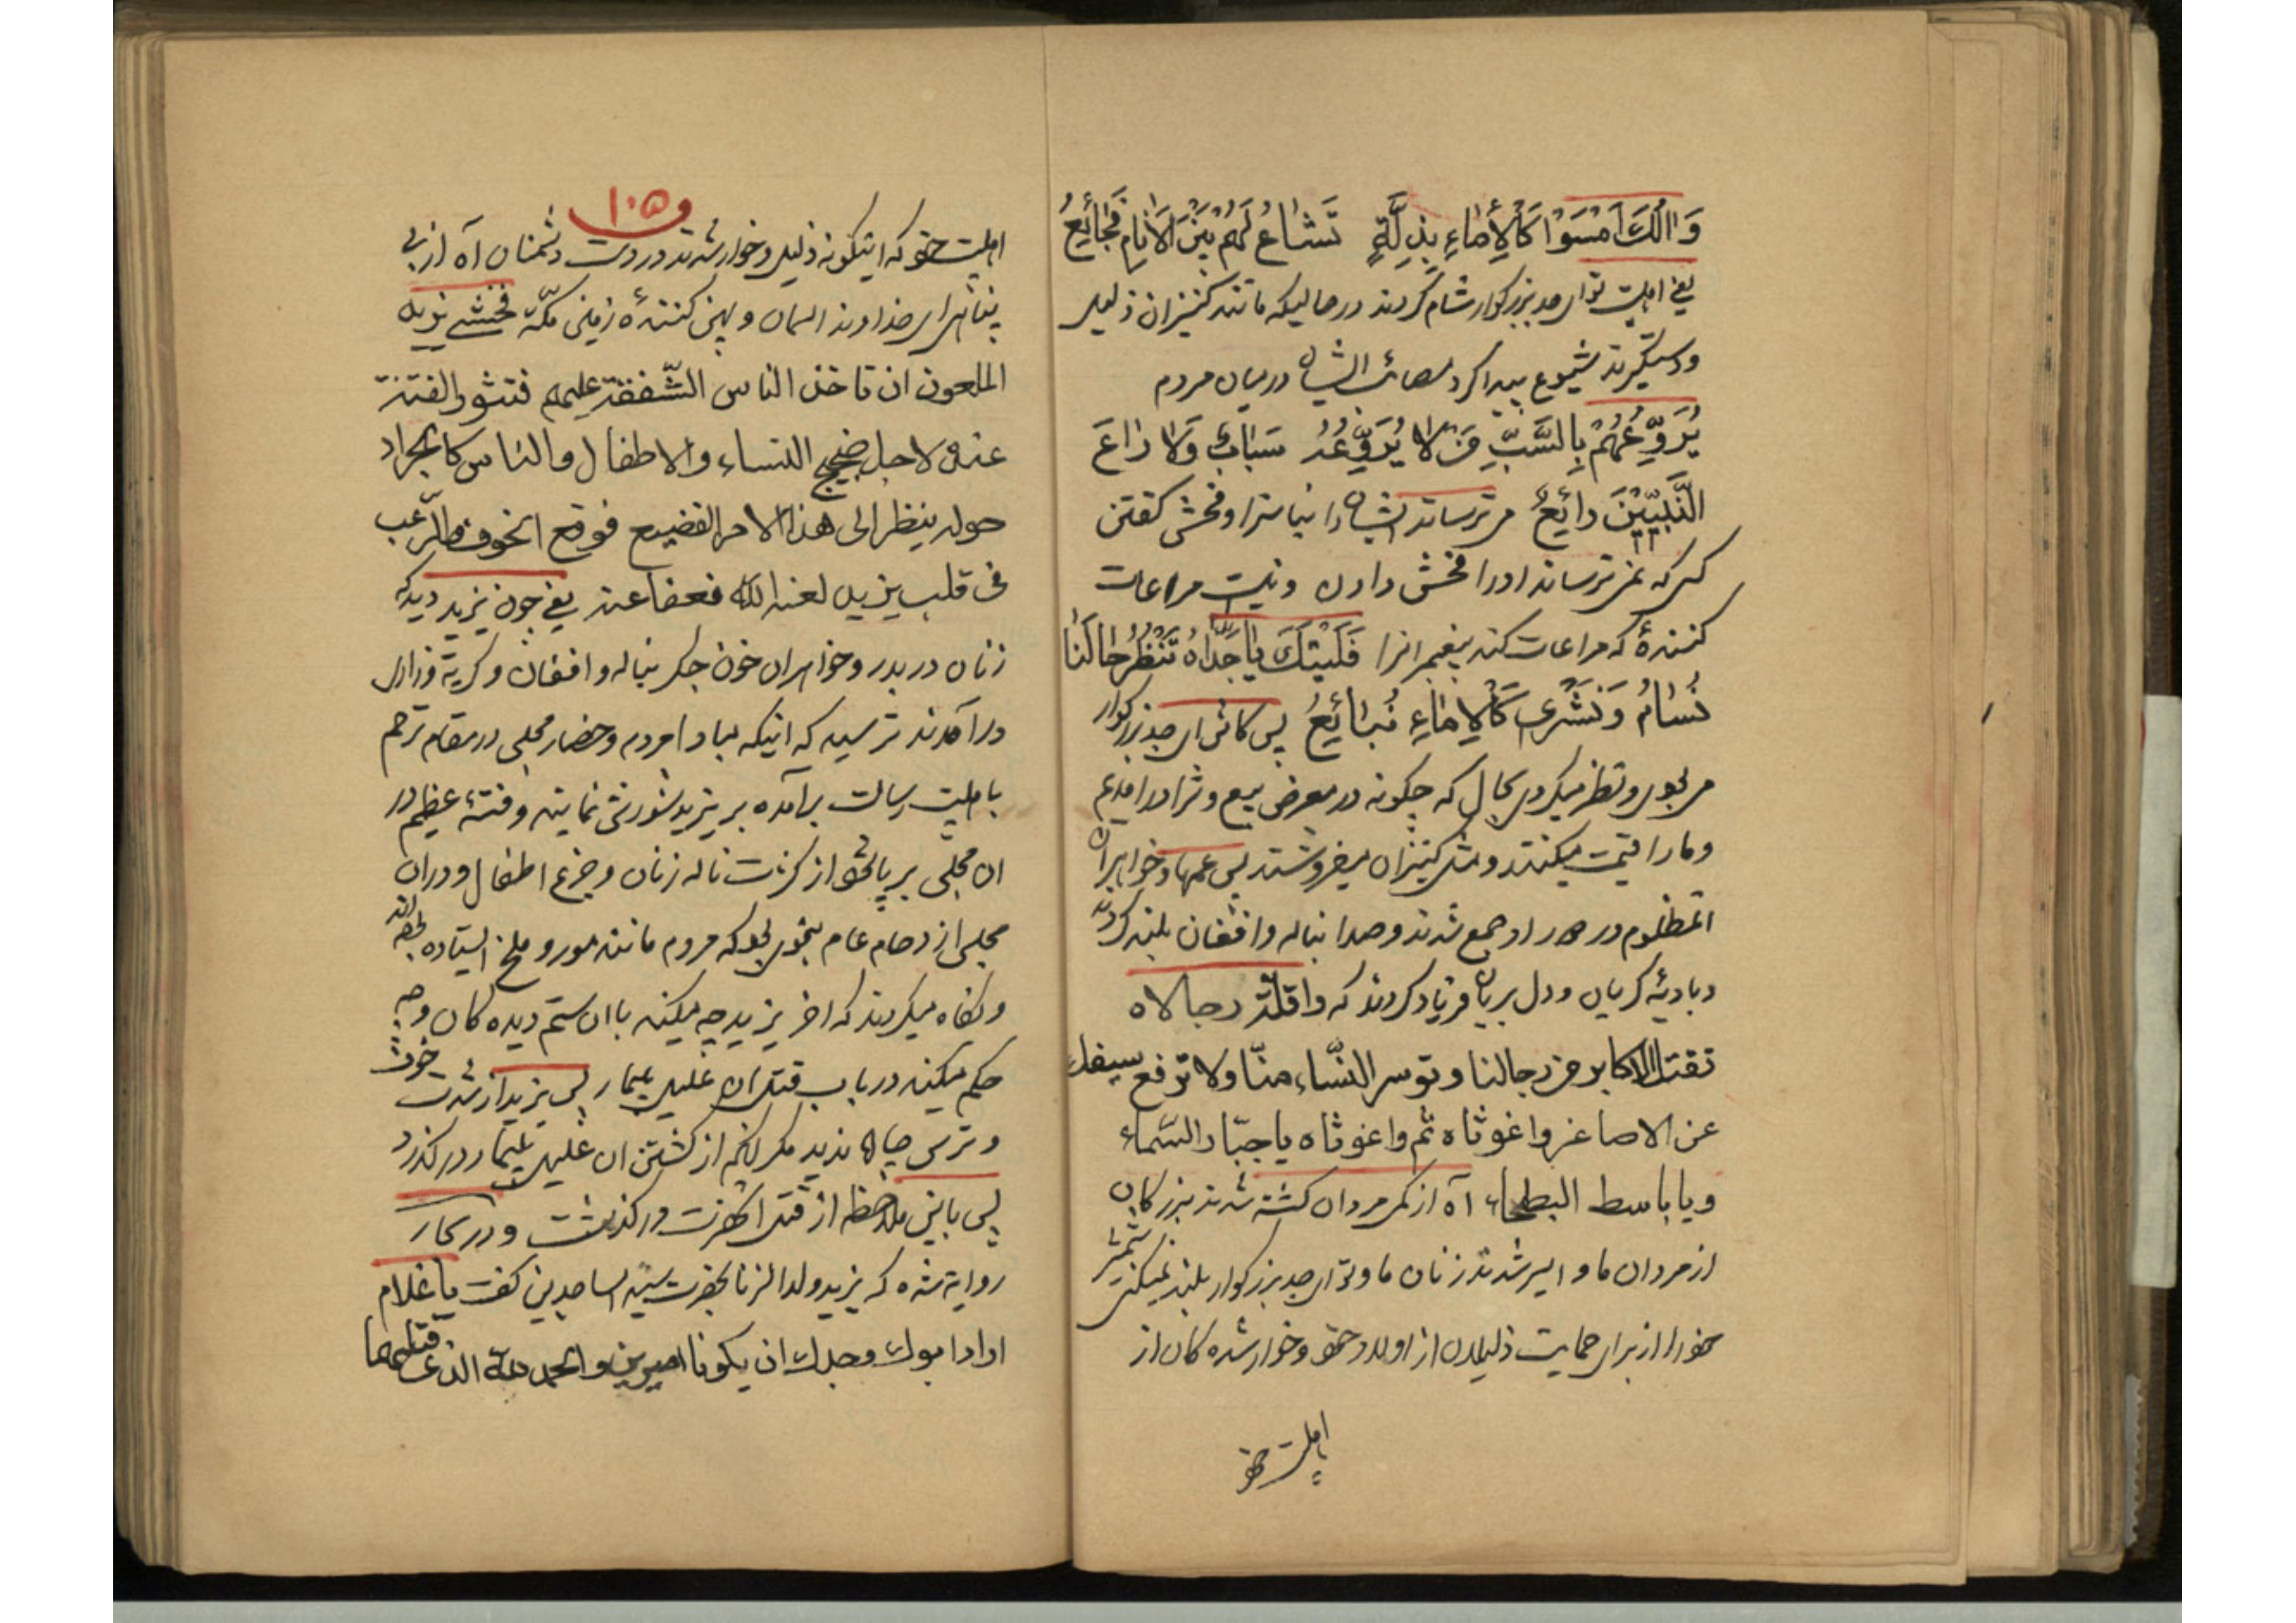 وَآلُكَ اَمْسَوْا كَالْأِمٰاءِ بِذِلَّةٍ تَشٰاعُ لَهُمْ بَيْنَ الْاَنٰامِ فَجٰائِعُ
يعنى اهلبيت تو اى جد بزركوار شام كردند در حاليكه مانند كنيزان ذليل
و دستكيرند شيوع پيدا كرد مصائب ايشان در ميان مردم
يُرَوِّعُهُمْ بِالسَّبِّ مَنْ لا يُرَوِّعُهُ سَبٰابٌ وَلا رٰاعَ
النَّبِيّيْنَ رائِعٌ مى ترساند ايشان را بناسزا و فحش كفتن
كسى كه نمى ترساند او را فحش دادن و نيست مراعات
كنندهٔ كه مراعات كند پيغمبرانرا فَلَيْتَكَ يٰا جَدّٰاهُ تَنْظُرُ حٰالَنٰا
نُسٰامُ وَنُشْرىٰ كَالْاِمٰاءِ نُبٰائِعُ پس كاش اى جد بزركوار
مى بودى و نظر ميكردى بحال ما كه چكونه در معرض بيع و شرا در امديم
و ما را قيمت ميكنند و مثل كنيزان ميفروشند پس عمها و خواهران
انمظلوم در دور او جمع شدند و صدا بناله و افغان بلند كردند
و با ديدهٔ كريان و دل بريان فرياد كردند كه واقلّة رجالاه
تقتل الاكابر من رجالنا و تؤسر النّساء منّا ولا ترفع سيفك
عن الاصاغر واغوثاه ثم واغوثاه يا جبّار السّماء
و يا باسط البطحاء آه از كمى مردان كشته شدند بزركان
از مردان ما و اسير شدند زنان ما و تو اى جد بزركوار بلند نميكنى شمشير
خود را از براى حمايت ذليلان از اولاد خود و خوار شده كان از
اهلبيت خود
١٠٥
اهلبيت خود كه اينكونه ذليل و خوار شدند در دست دشمنان آه از بى
پناهى اى خداوند اسمان و پهن كنندهٔ زمين مكّه فخشى يزيد
الملعون ان تاخذ الناس الشّفقة عليهم فتثور الفتنة
عنه لاجل ضجيج النساء والاطفال والناس كالجراد
حوله ينظر الى هذا الامر الفضيع فوقع الخوف والرّعب
فى قلب يزيد لعنه الله فعفا عنه يعنى چون يزيد ديد كه
زنان در بدر و خواهران خون جكر بناله و افغان و كريه و زارى
در آمدند ترسيد كه اينكه مبادا مردم و حضار مجلس در مقام ترحم
باهلبيت رسالت برآمده بر يزيد شورش نمايند و فتنهٔ عظيم در
ان مجلس بر پا شود از كثرت ناله زنان و جزع اطفال و در ان
مجلس ازدحام عام بنحوى بود كه مردم مانند مور و ملخ ايستاده بودند
و نكاه ميكردند كه اخر يزيد چه ميكند با ان ستم ديده كان و چه
حكم ميكند در باب قتل ان عليل بيمار پس يزيد از شدت خوف
و ترس چاره نديد مكر انكه از كشتن ان عليل بيمار در كذرد
پس باين ملاحظه از قتل انحضرت در كذشت و در بحار
روايت شده كه يزيد ولد الزنا بحضرت سيد الساجدين كفت يا غلام
اراد ابوك وجدك ان يكونا اميرين والحمد لله الذى قتلهما